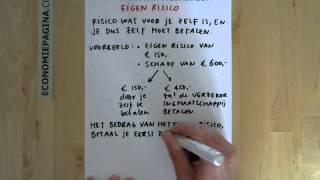 EIGEN RISICO
RISICO WAT VOOR JE ZELF IS, EN
JE DUS ZELF MOET BETALEN.
VOORBEELD: • EIGEN RISICO VAN
€ 150,-
• SCHADE VAN € 600,-
€ 150,-
door je
zelf te
betalen
€ 450,-
zal de VERZEKER
INGMAATSCHAPPIJ
BETALEN
HET BEDRAG VAN HET RISICO,
BETAAL JE EERST
ECONOMIEPAGINA.COM